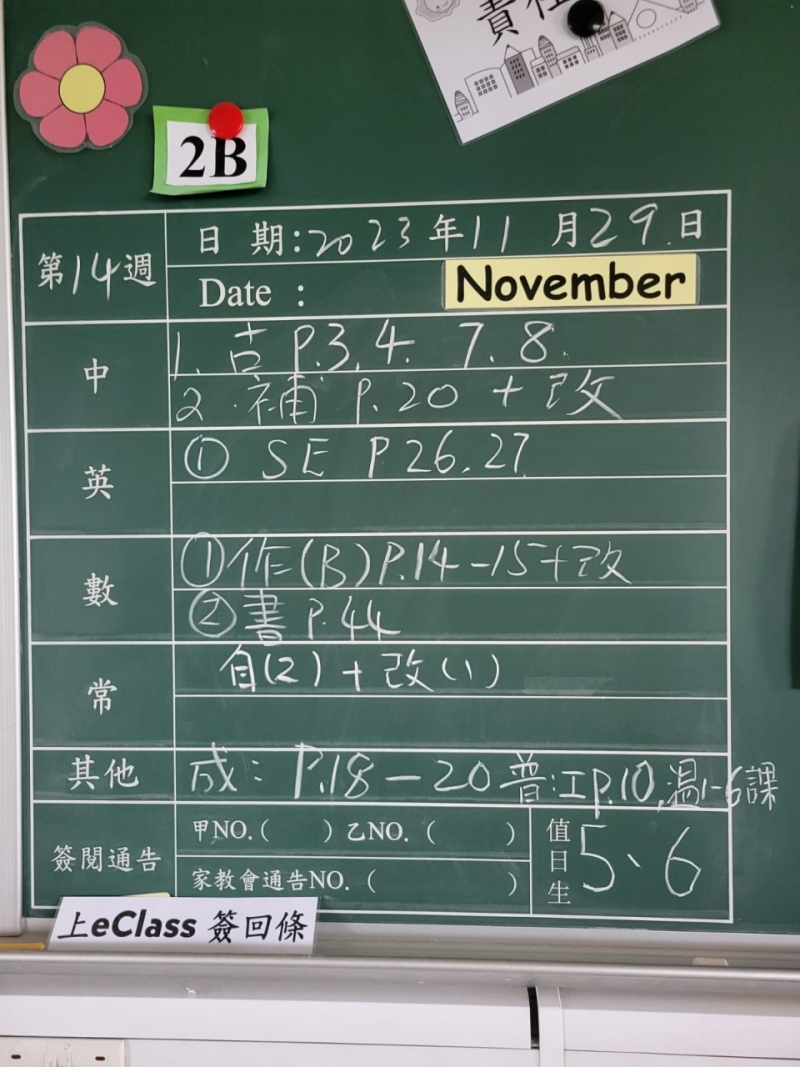 責任
2B
第14週
日 期:2023年11月29.日
Date : November
中
1. 古 P.3,4. 7,8.
2. 補 P.20 + 改
英
① SE P 26,27
數
①作(B)P.14-15+改
②書 P.44
常
自(2)+改(1)
其他
成: P.18-20 普:工P.10,溫1-6課
簽閱通告
甲NO.( ) 乙NO. ( )
家教會通告NO. ( )
值日生
5、6
上eClass 簽回條